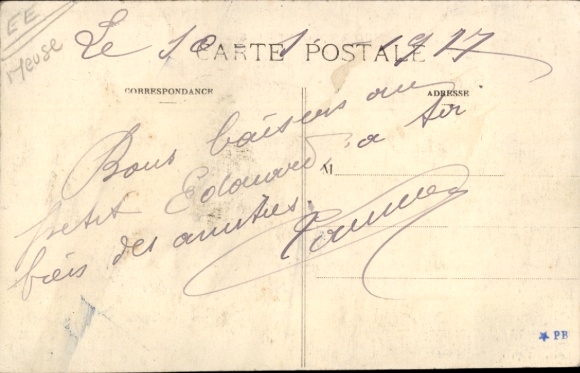 EE
Meuse
Le 10 1 1917
CARTE POSTALE
CORRESPONDANCE
ADRESSE
Bons baisers au
petit Edouard a toi
bien des amitiés.
M
PB